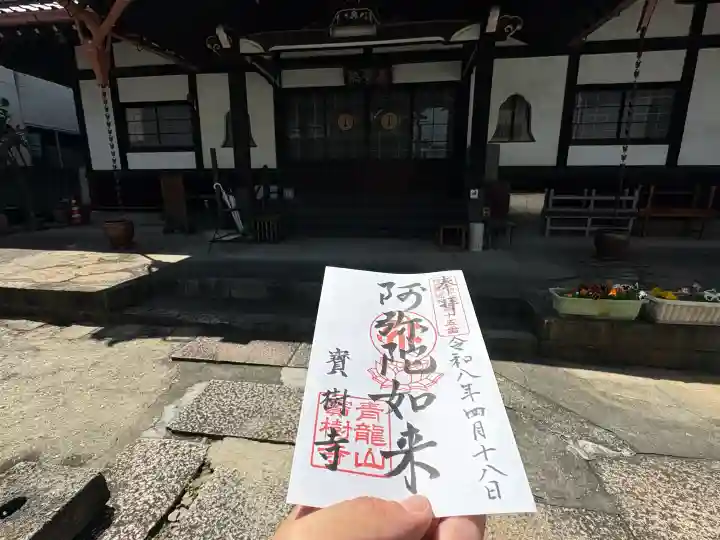 奉拝
令和八年四月十八日
阿弥陀如来
寳樹寺
青龍山
寳樹寺